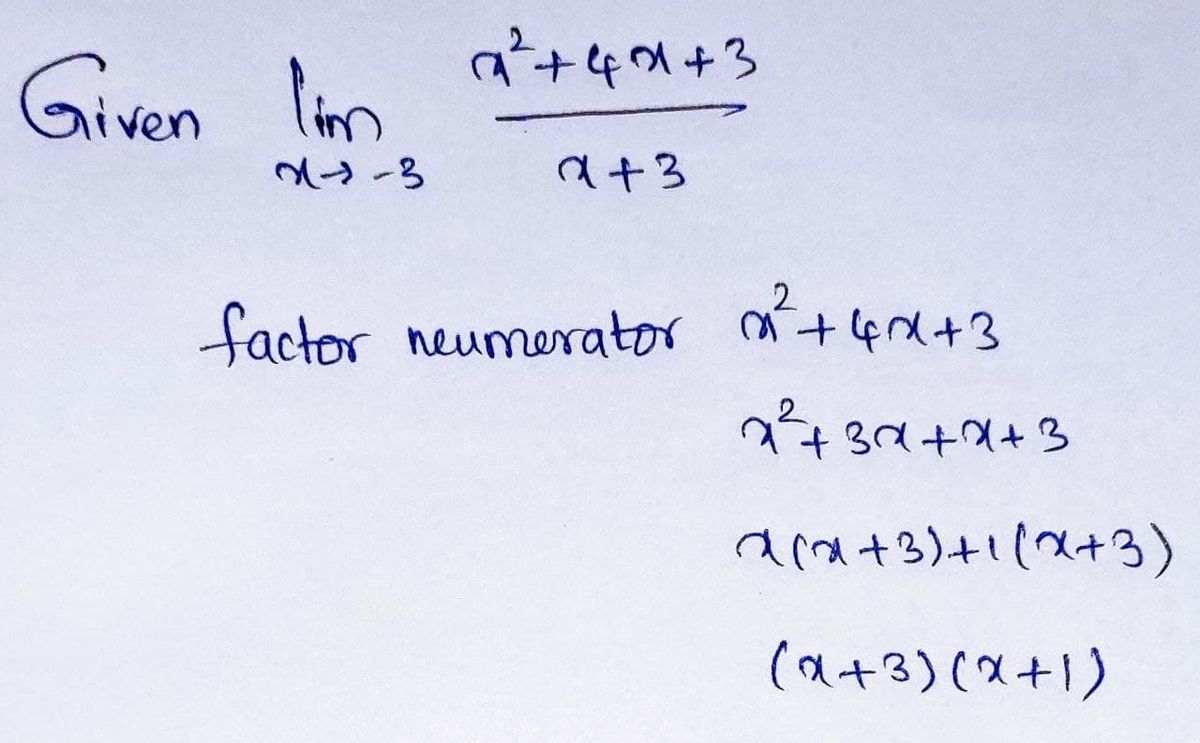 Given lim x→-3 x²+4x+3 / x+3
factor neumerator x²+4x+3
x²+3x+x+3
x(x+3)+1(x+3)
(x+3)(x+1)